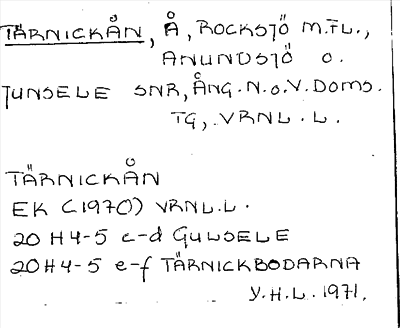 TÄRNICKÅN, Å, ROCKSJÖ M.FL.,
ANUNDSJÖ O.
JUNSELE SNR, ÅNG. N. O. V. DOMS.
TG, VRNL. L.
TÄRNICKÅN
EK (1970) VRNL.L.
20 H 4-5 c-d GULSELE
20H4-5 e-f TÄRNICKBODARNA
Y.H.L. 1971.